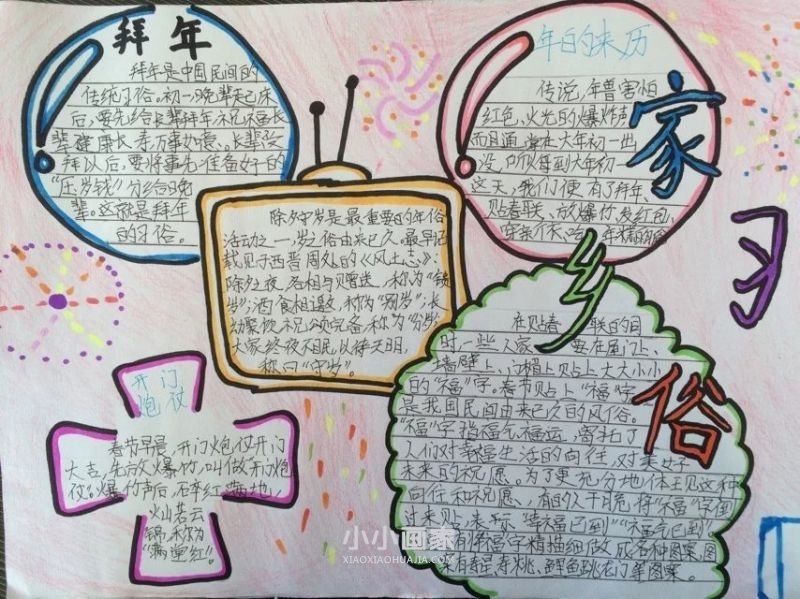 拜年
拜年是中国民间的
传统习俗。初一,晚辈起床
后,要先给长辈拜年,祝福长
辈健康长寿,万事如意。长辈受
拜以后,要将事先准备好的
“压岁钱”分给晚
辈。这就是拜年
的习俗。
年的来历
传说,年兽害怕
红色,火光的爆炸声
而且通常在大年初一出
没,所以每到大年初一
这天,我们便有了拜年、
贴春联、放爆竹、发红包、
家
乡
习
俗
除夕守岁是最重要的年俗
活动之一,岁之俗由来已久。最早记
载见于西晋周处的《风土志》:
除夕之夜,各相与赠送,称为“馈
岁”;酒食相邀,称为“别岁”;长
幼聚饮,祝颂完备,称为“分岁”;
大家终夜不眠,以待天明,
称曰“守岁”。
开门
炮仗
春节早晨,开门炮仗开门
大吉,先放爆竹,叫做开门炮
仗。爆竹声后,碎红满地,
灿若云
锦,称为
“满堂红”。
在贴春联的同
时,一些人家要在屋门上、
墙壁上、门楣上贴上大大小小
的“福”字。春节贴上“福”字,
是我国民间由来已久的风俗。
“福”字指福气、福运,寄托了
人们对幸福生活的向往,对美好
未来的祝愿。为了更充分地体现这种
向往和祝愿,有的人干脆将“福”字倒
过来贴,表示“幸福已到”“福气已到”。
福字精描细做成各种图案,图
寿桃、鲤鱼跳龙门等图案。
小小画家
XIAOXIAOHUAJIA.COM